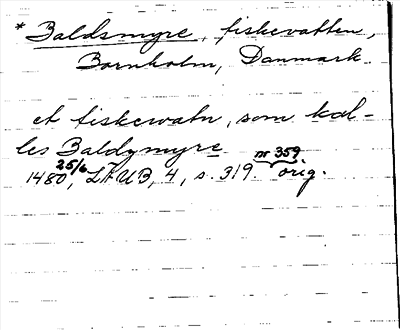 * Baldsmyre, fiskevatten,
Bornholm, Danmark.
et fiskewatn, som kal-
les Baldzmyre
1480 25/6, LAUB, 4, s. 319. nr 359 orig.